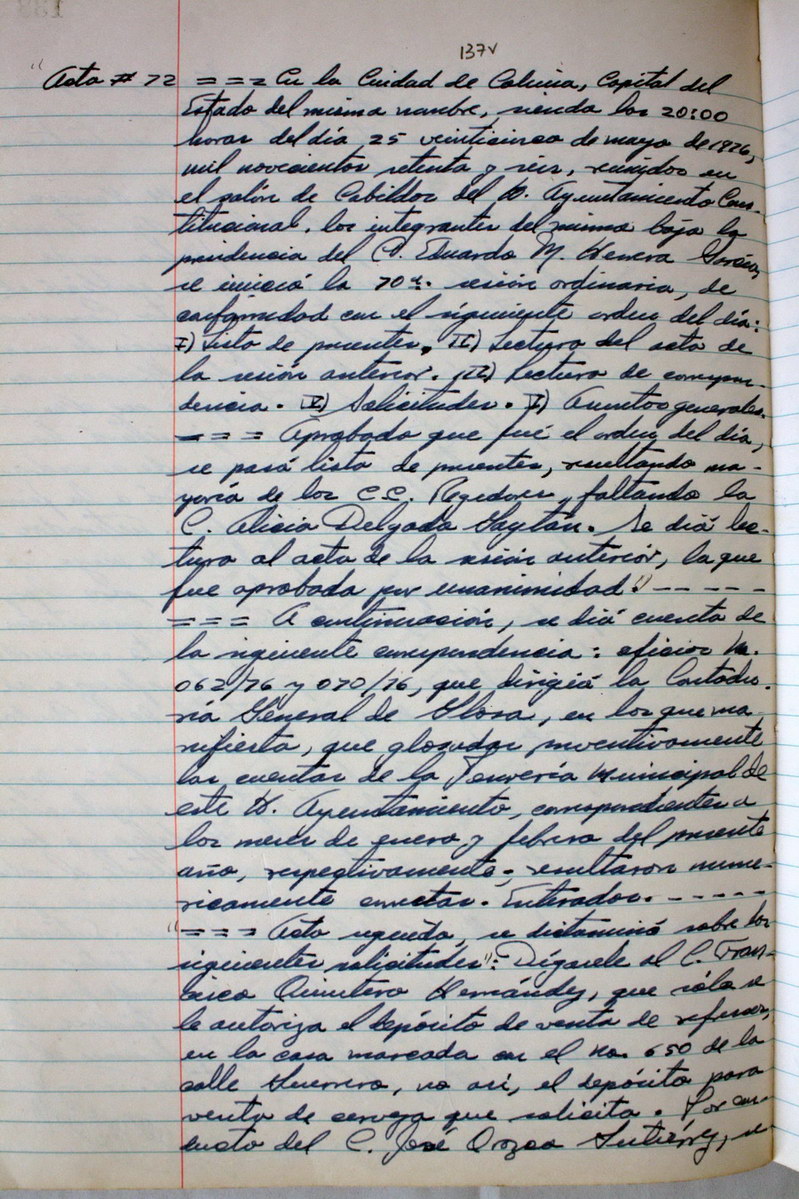 137v
" Acta # 72 = = = En la Ciudad de Colima, Capital del
Estado del mismo nombre, siendo las 20:00
horas del día 25 veinticinco de mayo de 1976,
mil novecientos setenta y seis, reunidos en
el salón de Cabildos del H. Ayuntamiento Cons-
titucional, los integrantes del mismo bajo la
presidencia del C. Eduardo M. Herrera García,
se inició la 70a. sesión ordinaria, de
conformidad con el siguiente orden del día:
I) Lista de presentes. II) Lectura del acta de
la sesión anterior. III) Lectura de correspon-
dencia. IV) Solicitudes. V) Asuntos generales.
= = = Aprobado que fué el orden del día,
se pasó lista de presentes, resultando ma-
yoría de los CC. Regidores, faltando la
C. Alicia Delgado Gaytán. Se dió lec-
tura al acta de la sesión anterior, la que
fue aprobada por unanimidad." - - - - -
= = = A continuación, se dió cuenta de
la siguiente correspondencia: oficios No.
062/76 y 070/76, que dirigió la Contadu-
ría General de Glosa, en los que ma-
nifiesta, que glosadas preventivamente
las cuentas de la Tesorería Municipal de
este H. Ayuntamiento, correspondientes a
los meses de enero y febrero del presente
año, respectivamente, resultaron numé-
ricamente correctas. Enterados. - - - - -
" = = = Acto seguido, se dictaminó sobre las
siguientes solicitudes": Dígasele al C. Fran-
cisco Quintero Hernández, que sólo se
le autoriza el depósito de venta de refrescos,
en la casa marcada con el no. 650 de la
calle Guerrero, no así, el depósito para
venta de cerveza que solicita. Por con-
ducto del C. José Orozco Gutiérrez, se